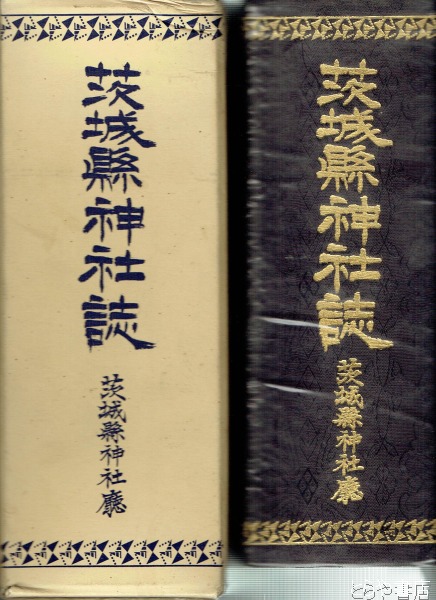 茨城縣神社誌
茨城縣神社廳
茨城縣神社誌
茨城縣神社廳
とらや書店